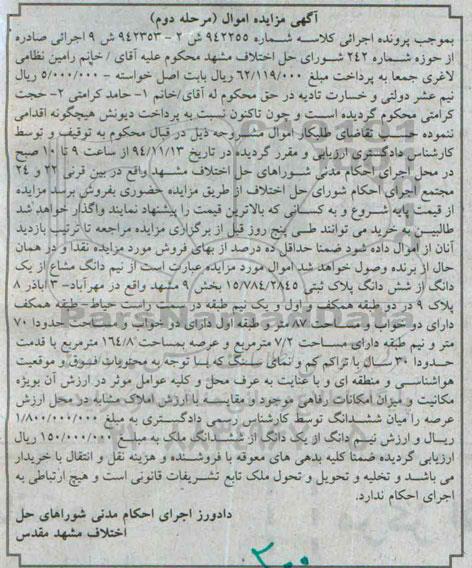 آگهی مزایده اموال (مرحله دوم)
بموجب پرونده اجرائی کلاسه شماره ۹۴۲۲۵۵ ش ۲ - ۹۴۲۳۵۳ ش ۹ اجرائی صادره
از حوزه شماره ۲۴۲ شورای حل اختلاف مشهد محکوم علیه آقای / خانم رامین نظامی
لاغری جمعا به پرداخت مبلغ ۶۲/۱۱۹/۰۰۰ ریال بابت اصل خواسته - ۵/۰۰۰/۰۰۰ ریال
نیم عشر دولتی و خسارت تادیه در حق محکوم له آقای/خانم ۱- حامد کرامتی ۲- حجت
کرامتی محکوم گردیده است و چون تاکنون نسبت به پرداخت دیونش هیچگونه اقدامی
ننموده حسب تقاضای طلبکار اموال مشروحه ذیل در قبال محکوم به توقیف و توسط
کارشناس دادگستری ارزیابی و مقرر گردیده در تاریخ ۹۴/۱۱/۱۳ از ساعت ۹ تا ۱۰ صبح
در محل اجرای احکام مدنی شوراهای حل اختلاف مشهد واقع در بین قرنی ۲۲ و ۲۴
مجتمع اجرای احکام شورای حل اختلاف از طریق مزایده حضوری بفروش برسد مزایده
از قیمت پایه شروع و به کسانی که بالاترین قیمت را پیشنهاد نمایند واگذار خواهد شد
طالبین به خرید می توانند طی پنج روز قبل از برگزاری مزایده مراجعه تا ترتیب بازدید
آنان از اموال داده شود ضمنا حداقل ده درصد از بهای فروش مورد مزایده نقدا و در همان
حال از برنده وصول خواهد شد اموال مورد مزایده عبارت است از نیم دانگ مشاع از یک
دانگ از شش دانگ پلاک ثبتی ۱۵/۷۸۴/۲۸۴۵ بخش ۹ مشهد واقع در مهرآباد- ۳ اباذر ۸
پلاک ۹ در دو طبقه همکف و اول و یک نیم طبقه در سمت راست حیاط- طبقه همکف
دارای دو خواب و مساحت ۸۷/۰ متر و طبقه اول دارای دو خواب و مساحت حدودا ۷۰
متر و نیم طبقه دارای مساحت ۷/۲ مترمربع و عرصه بمساحت ۱۶۴/۸ مترمربع با قدمت
حدودا ۳۰ سال با تراکم کم و نمای سنگ که با توجه به محتویات فوق و موقعیت
هواشناسی و منطقه ای و با عنایت به عرف محل و کلیه عوامل موثر در ارزش آن بویژه
مکانیت و میزان امکانات رفاهی موجود و مقایسه با ارزش املاک مشابه در محل ارزش
عرصه را میان ششدانگ توسط کارشناس رسمی دادگستری به مبلغ ۱/۸۰۰/۰۰۰/۰۰۰
ریال و ارزش نیم دانگ از یک دانگ از ششدانگ ملک به مبلغ ۱۵۰/۰۰۰/۰۰۰ ریال
ارزیابی گردیده ضمنا کلیه بدهی های معوقه با فروشنده و هزینه نقل و انتقال با خریدار
می باشد و تخلیه و تحویل و تحول ملک تابع تشریفات قانونی است و هیچ ارتباطی به
اجرای احکام ندارد.
دادورز اجرای احکام مدنی شوراهای حل
اختلاف مشهد مقدس